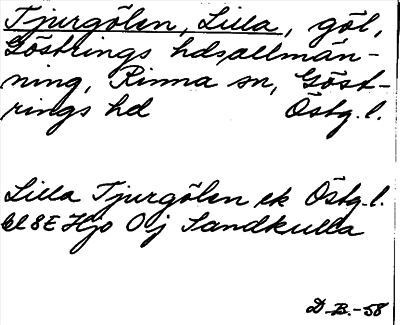 Tjurgölen, Lilla, göl,
Göstrings hdsallmän-
ning, Rinna sn, Göst-
rings hd Östg. l.
Lilla Tjurgölen ek Östg. l.
bl 8E Hjo 0j Sandkulla
D. B. - 58